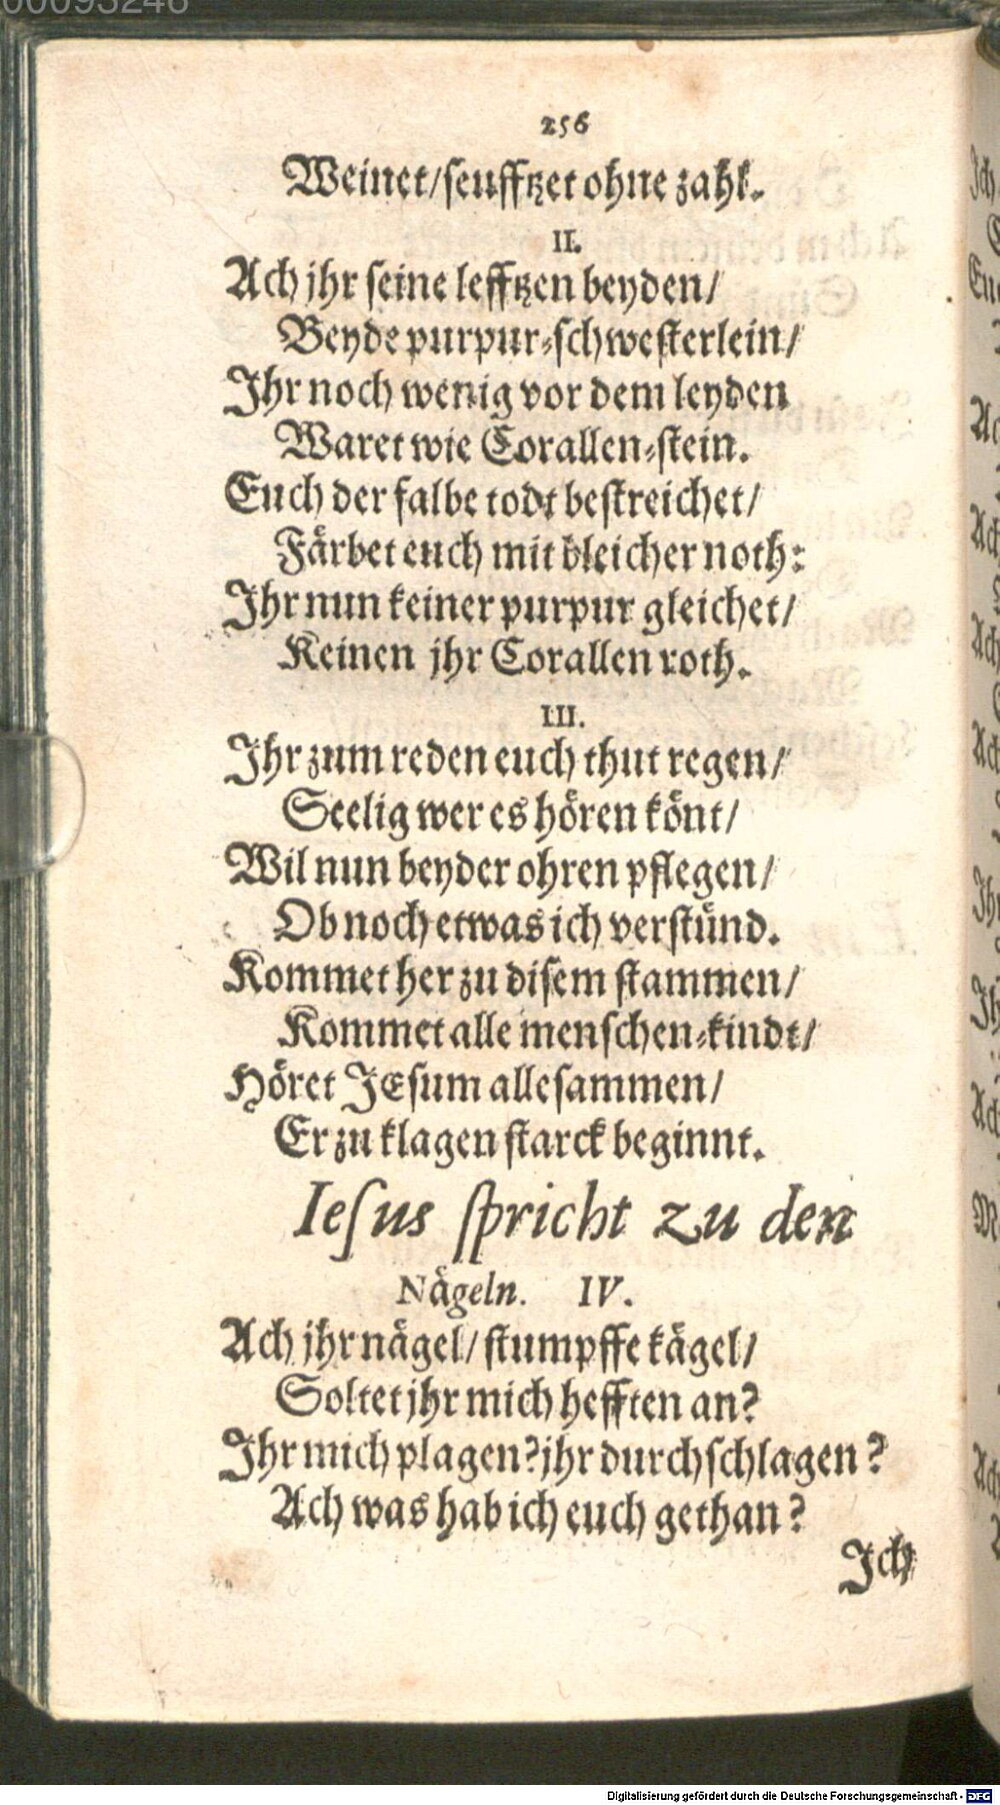 00093246
256
Weinet/ seufftzet ohne zahl.
II.
Ach jhr seine lefftzen beyden/
Beyde purpur-schwesterlein/
Ihr noch wenig vor dem leyden
Waret wie Corallen-stein.
Euch der falbe todt bestreichet/
Färbet euch mit bleicher noth:
Ihr nun keiner purpur gleichet/
Keinen jhr Corallen roth.
III.
Ihr zum reden euch thut regen/
Seelig wer es hören könt/
Wil nun beyder ohren pflegen/
Ob noch etwas ich verstünd.
Kommet her zu disem stammen/
Kommet alle menschen-kindt/
Höret JEsum allesammen/
Er zu klagen starck beginnt.
Iesus spricht zu den
Nägeln. IV.
Ach jhr nägel/ stumpffe kägel/
Soltet jhr mich hefften an?
Ihr mich plagen? jhr durchschlagen?
Ach was hab ich euch gethan?
Ich
Digitalisierung gefördert durch die Deutsche Forschungsgemeinschaft - DFG